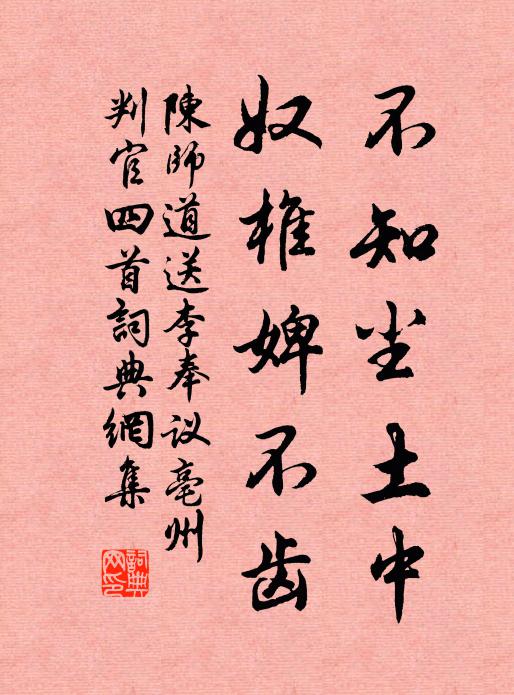 不知尘土中
奴椎婢不齿
陳師道送李奉议亳州
判官四首詞典網集
詞典网印